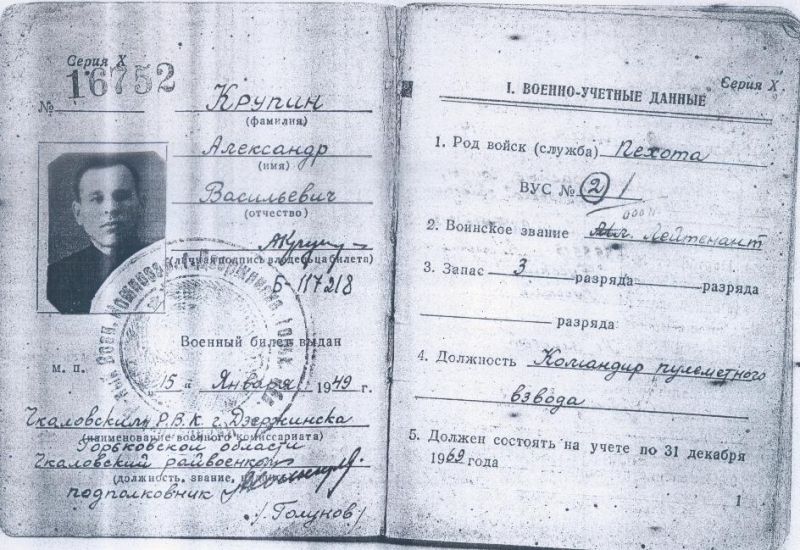 Серия X
16752
№
Крупин
(фамилия)
Александр
(имя)
Васильевич
(отчество)
(личная подпись владельца билета)
Б-117218
Военный билет выдан
м. п.
„15 “ Января 1949 г.
Чкаловским Р.В.К г. Дзержинска
(наименование военного комиссариата)
Горьковской области
Чкаловский райвоенком
(должность, звание,
подполковник
/Голунов/
Серия X
I. ВОЕННО-УЧЕТНЫЕ ДАННЫЕ
1. Род войск (служба) Пехота
ВУС № 2 1
2. Воинское звание Мл. Лейтенант
3. Запас 3 разряда разряда
разряда
4. Должность Командир пулеметного
взвода
5. Должен состоять на учете по 31 декабря
1969 года
1